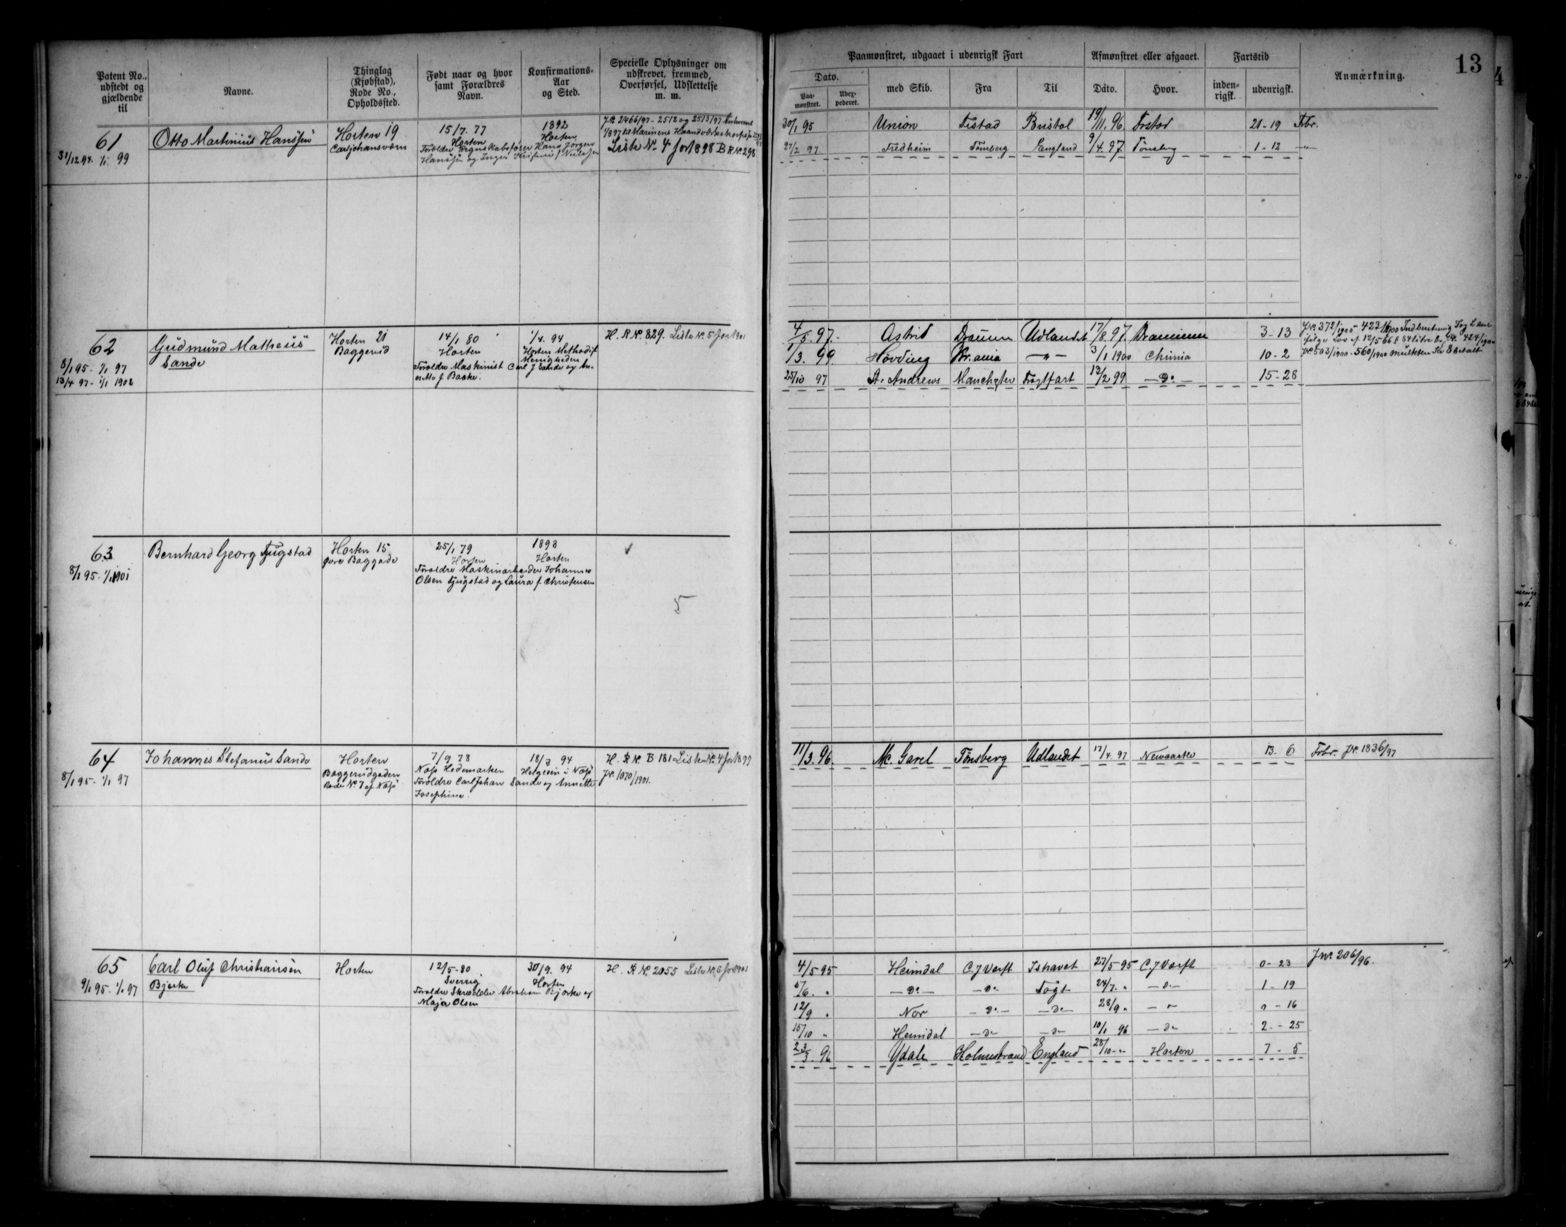 Patent No.,
udstedt og
gjældende
til
Navne.
Thinglag
(Kjøbstad),
Rode No.,
Opholdssted.
Født naar og hvor
samt Forældres
Navn.
Konfirmations-
Aar
og Sted.
Specielle Oplysninger om
udskrevet, fremmed,
Overførsel, Udslettelse
m. m.
61
31/12 94. 1/1 99
Otto Martinius Hansen
Horten 19
Carljohansværn
15/7. 77
Horten
1892
Horten
Liste No. 4 for 1898 B R.No. 298
62
8/1 95. 1/1 97
13/4 97. 1/1 1902
Gudmund Matheus
Sande
Horten 21
Baggerud
14/1 80
Horten
Forældre Maskinist Carl J Sande og
1/4. 94
Horten Methodist
Menigheden
H. R No. 829. Liste No. 5 for 1901
63
8/1 95. 1/1 1901
Bernhard Georg Gjugstad
Horten 15
øvre Baggade
25/1 79
Horten
Forældre Maskinarbeider Johannes
Olsen Gjugstad og Laura f. Christensen
1893
Horten
5
64
8/1 95. 1/1 97
Johannes Stefanus Sande
Horten
Baggerudgaden
Rode No. 7 af Næs
7/9. 78
Næs Hedemarken
Forældre Carl Johan Sande og Annette
Josephine.
18/3. 94
Helgøen i Næs
H. R No. B 181 Liste No. 4 for 1899
J.No. 1070/1901.
65
9/1 95. 1/1 97
Carl Oluf Christiansen
Bjerke
Horten
12/5-80
Sverrig
Forældre Skrædder Abraham Bjerke og
Maja Olsen
30/9. 94
Horten
H. R No. 2055 Liste No. 5 for 1901
13
Paamønstret, udgaaet i udenrigsk Fart
Afmønstret eller afgaaet.
Fartstid
Anmærkning.
Dato.
Paa-
mønstret.
Udex-
pederet.
med Skib.
Fra
Til
Dato.
Hvor.
inden-
rigsk.
udenrigsk.
30/1 95 Union Tistad Bristol 19/11. 96 21-19 Frbr.
27/2 97 Fredheim Tønsberg England 9/4. 97. Tønsberg 1-12
4/5 97. Astrid Drammen Udlandet 17/8 97. Drammen 3-13
1/3. 99 Høvding Kr.ania -"- 3/1 1900 Chrnia 10-2
25/10 97 St. Andrews Manchester Togtfart 13/2 99 -do- 15-28
11/3. 96 Mc. Garel Tønsberg Udlandet 17/4. 97 Newcastle 13. 6 Frbr. J.No. 1836/97
4/5 95 Heimdal C J Værft Ishavet 27/5 95 C J Værft 0-23 J.No. 206/96.
5/6. " -do- -do- Togt 24/7. " -"- 1-19
12/9 " Nor -do- -do- 28/9 " -"- 0-16
15/10 " Heimdal -do- -do- 10/1 96 -do- 2-25
23/3. 96 Ydale Holmestrand England 28/10 -"- Horten 7-5